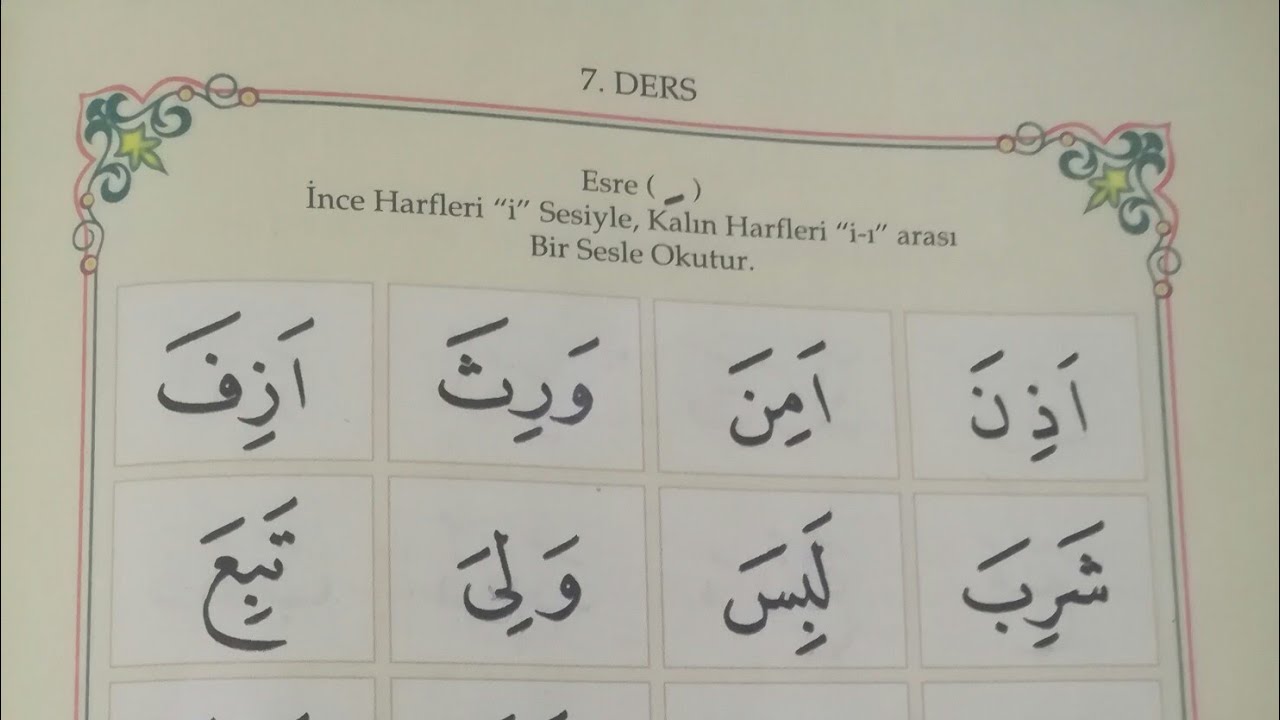 7. DERS
Esre ( ـِ )
İnce Harfleri “i” Sesiyle, Kalın Harfleri “i-ı” arası
Bir Sesle Okutur.
اَذِنَ اَمِنَ وَرِثَ اَزِفَ
شَرِبَ لَبِسَ وَلِىَ تَبِعَ